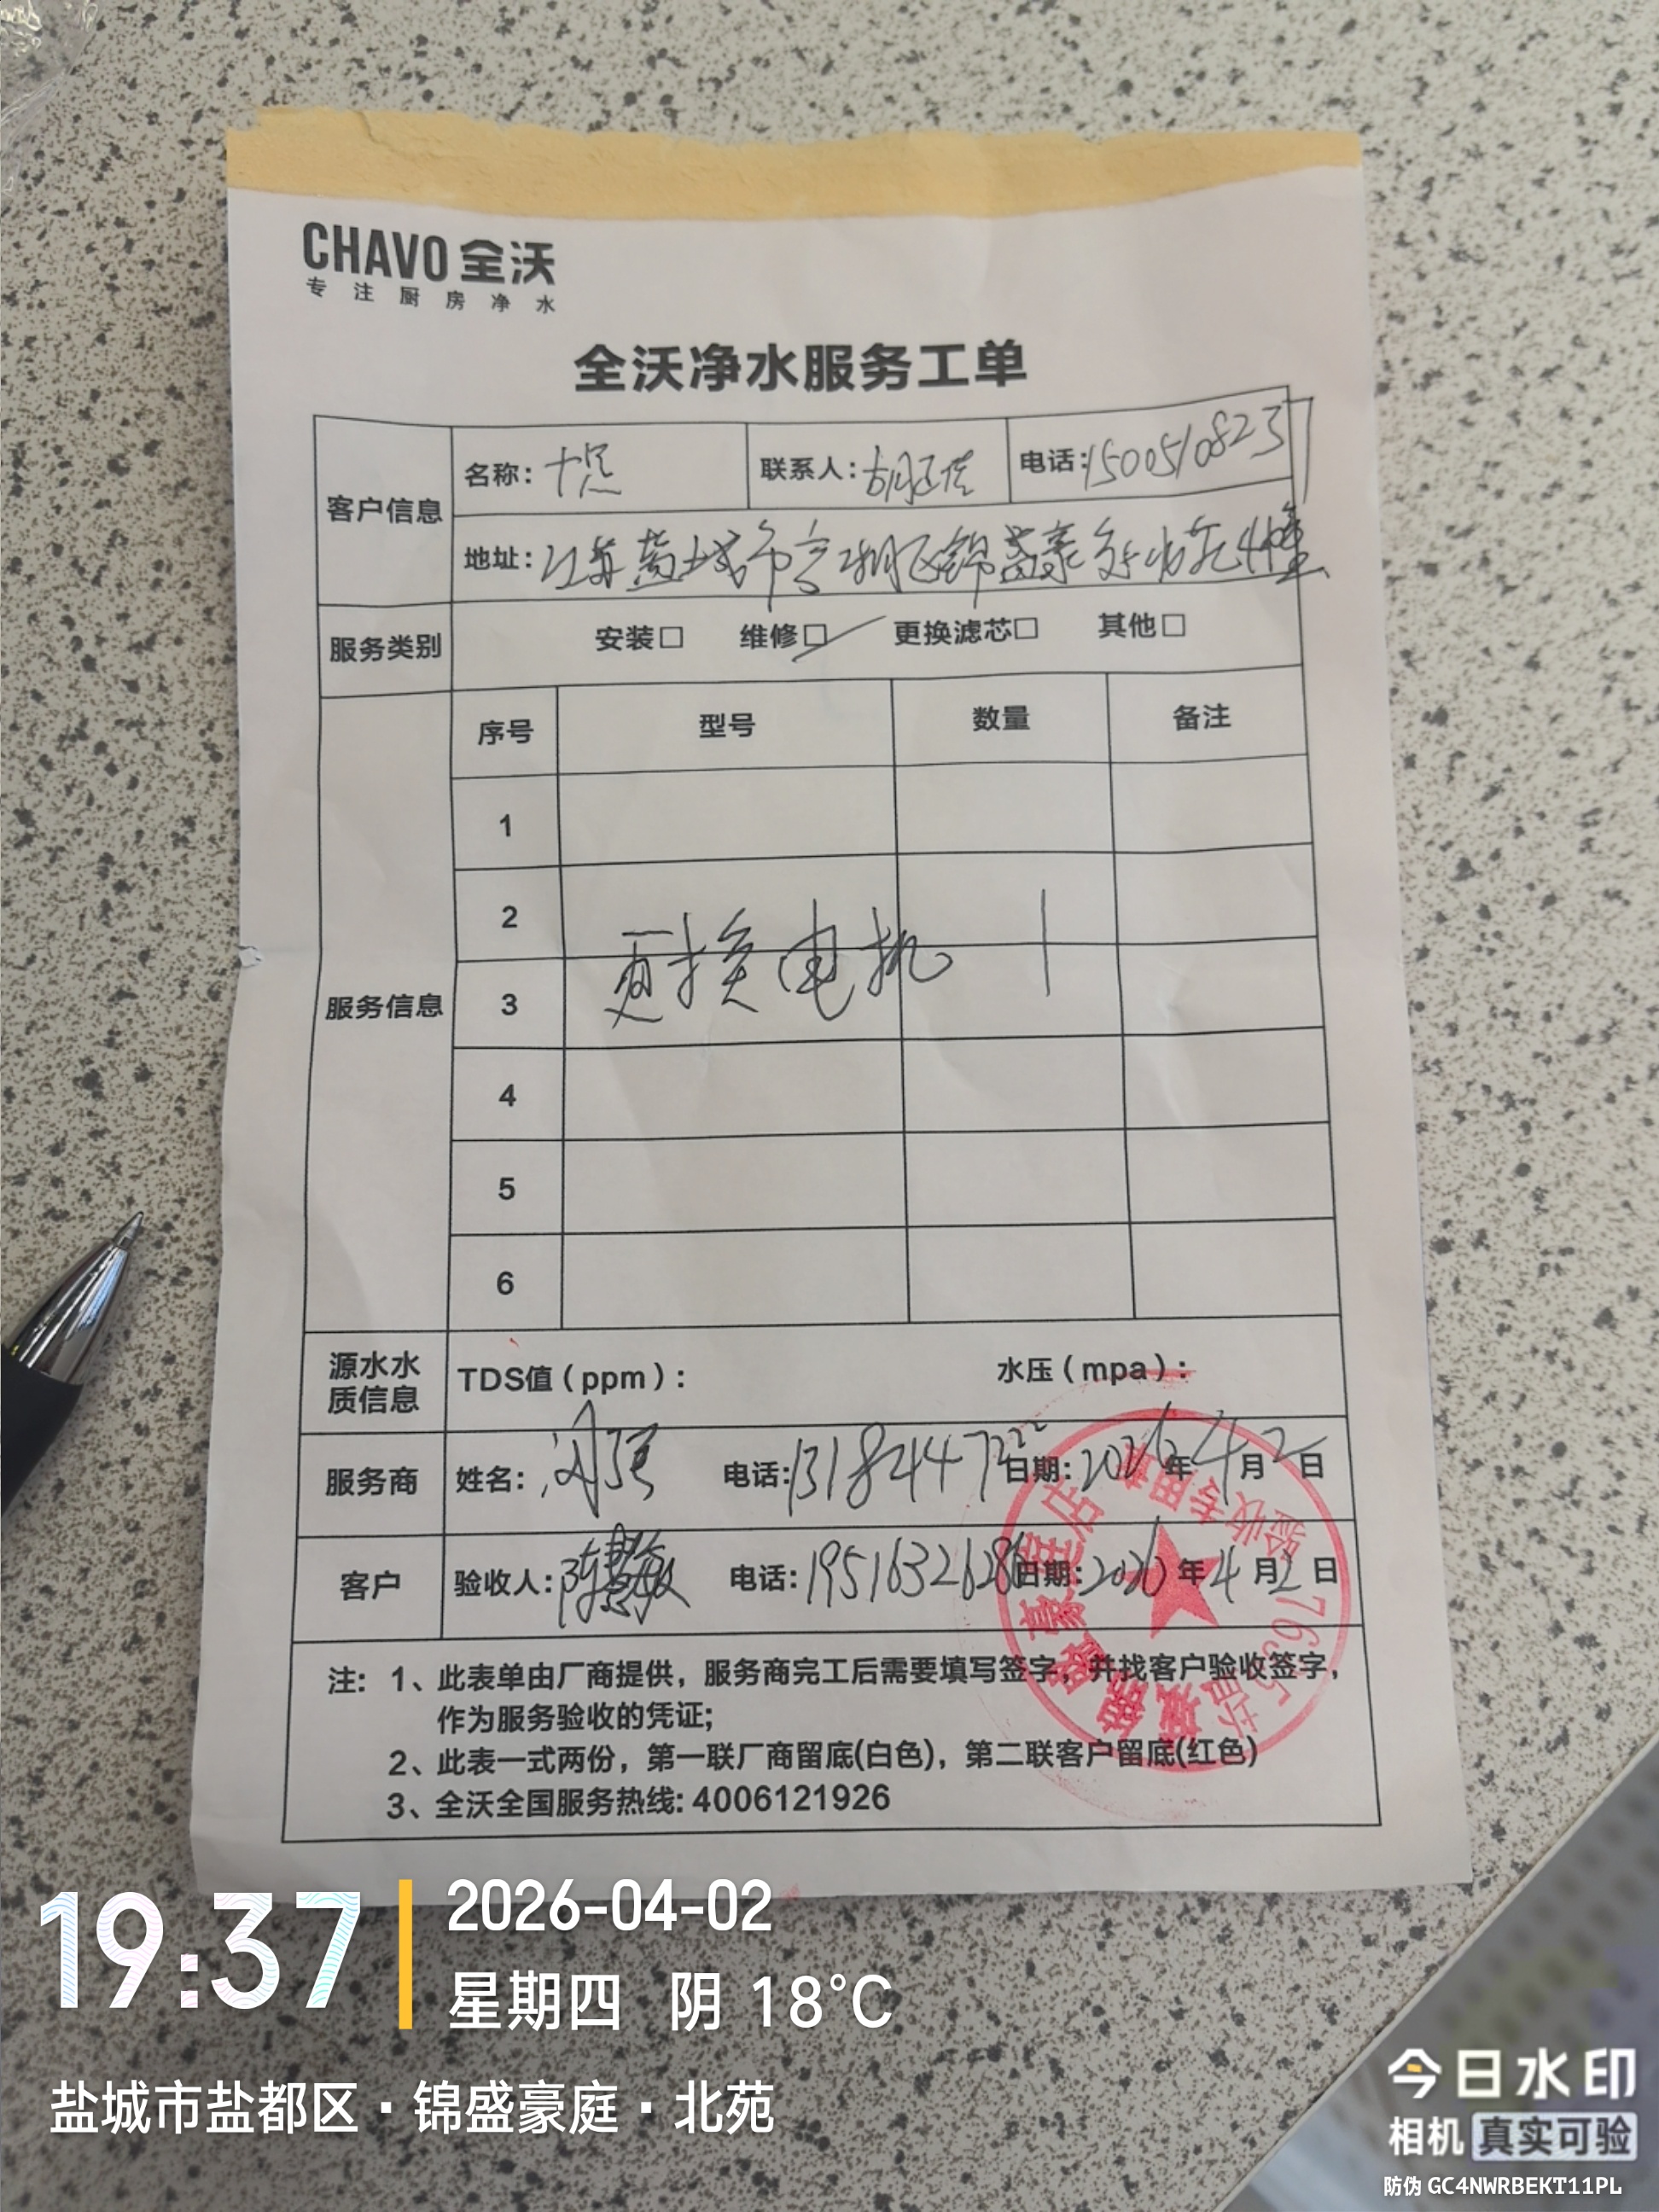 CHAVO 全沃
专注厨房净水
全沃净水服务工单
客户信息
名称: 十足 联系人: 电话:15005108231
地址: 江苏盐城市亭湖区锦盛豪庭北苑4幢
服务类别 安装□ 维修□ 更换滤芯□ 其他□
服务信息
序号 型号 数量 备注
1
2
更换电机 1
3
4
5
6
源水水质信息 TDS值(ppm): 水压(mpa):
服务商 姓名: 电话:13182447222 日期:2026年4月2日
客户 验收人:陈慧敏 电话:19516326286 日期:2026年4月2日
注: 1、此表单由厂商提供,服务商完工后需要填写签字,并找客户验收签字,
作为服务验收的凭证;
2、此表一式两份,第一联厂商留底(白色),第二联客户留底(红色)
3、全沃全国服务热线: 4006121926
验收专用章
19:37
2026-04-02
星期四 阴 18°C
盐城市盐都区·锦盛豪庭·北苑
今日水印
相机 真实可验
防伪 GC4NWRBEKT11PL